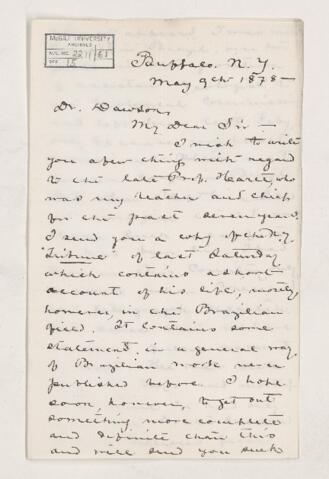 McGILL UNIVERSITY
ARCHIVES
ACC. NO. 2211/65
REF. 15
Buffalo, N. Y.
May 9th 1878 —
Dr. Dawson,
My Dear Sir —
I wish to write
you a few things with regard
to the late Prof. Hartt, who
was my teacher and chief
for the past seven years.
I send you a copy of the N.Y.
"Tribune" of last Saturday
which contains a short
account of his life, mostly,
however, in the Brazilian
field. It contains some
statements in a general way
of Brazilian work never
published before. I hope
soon, however, to get out
something more complete
and definite than this
and will send you such